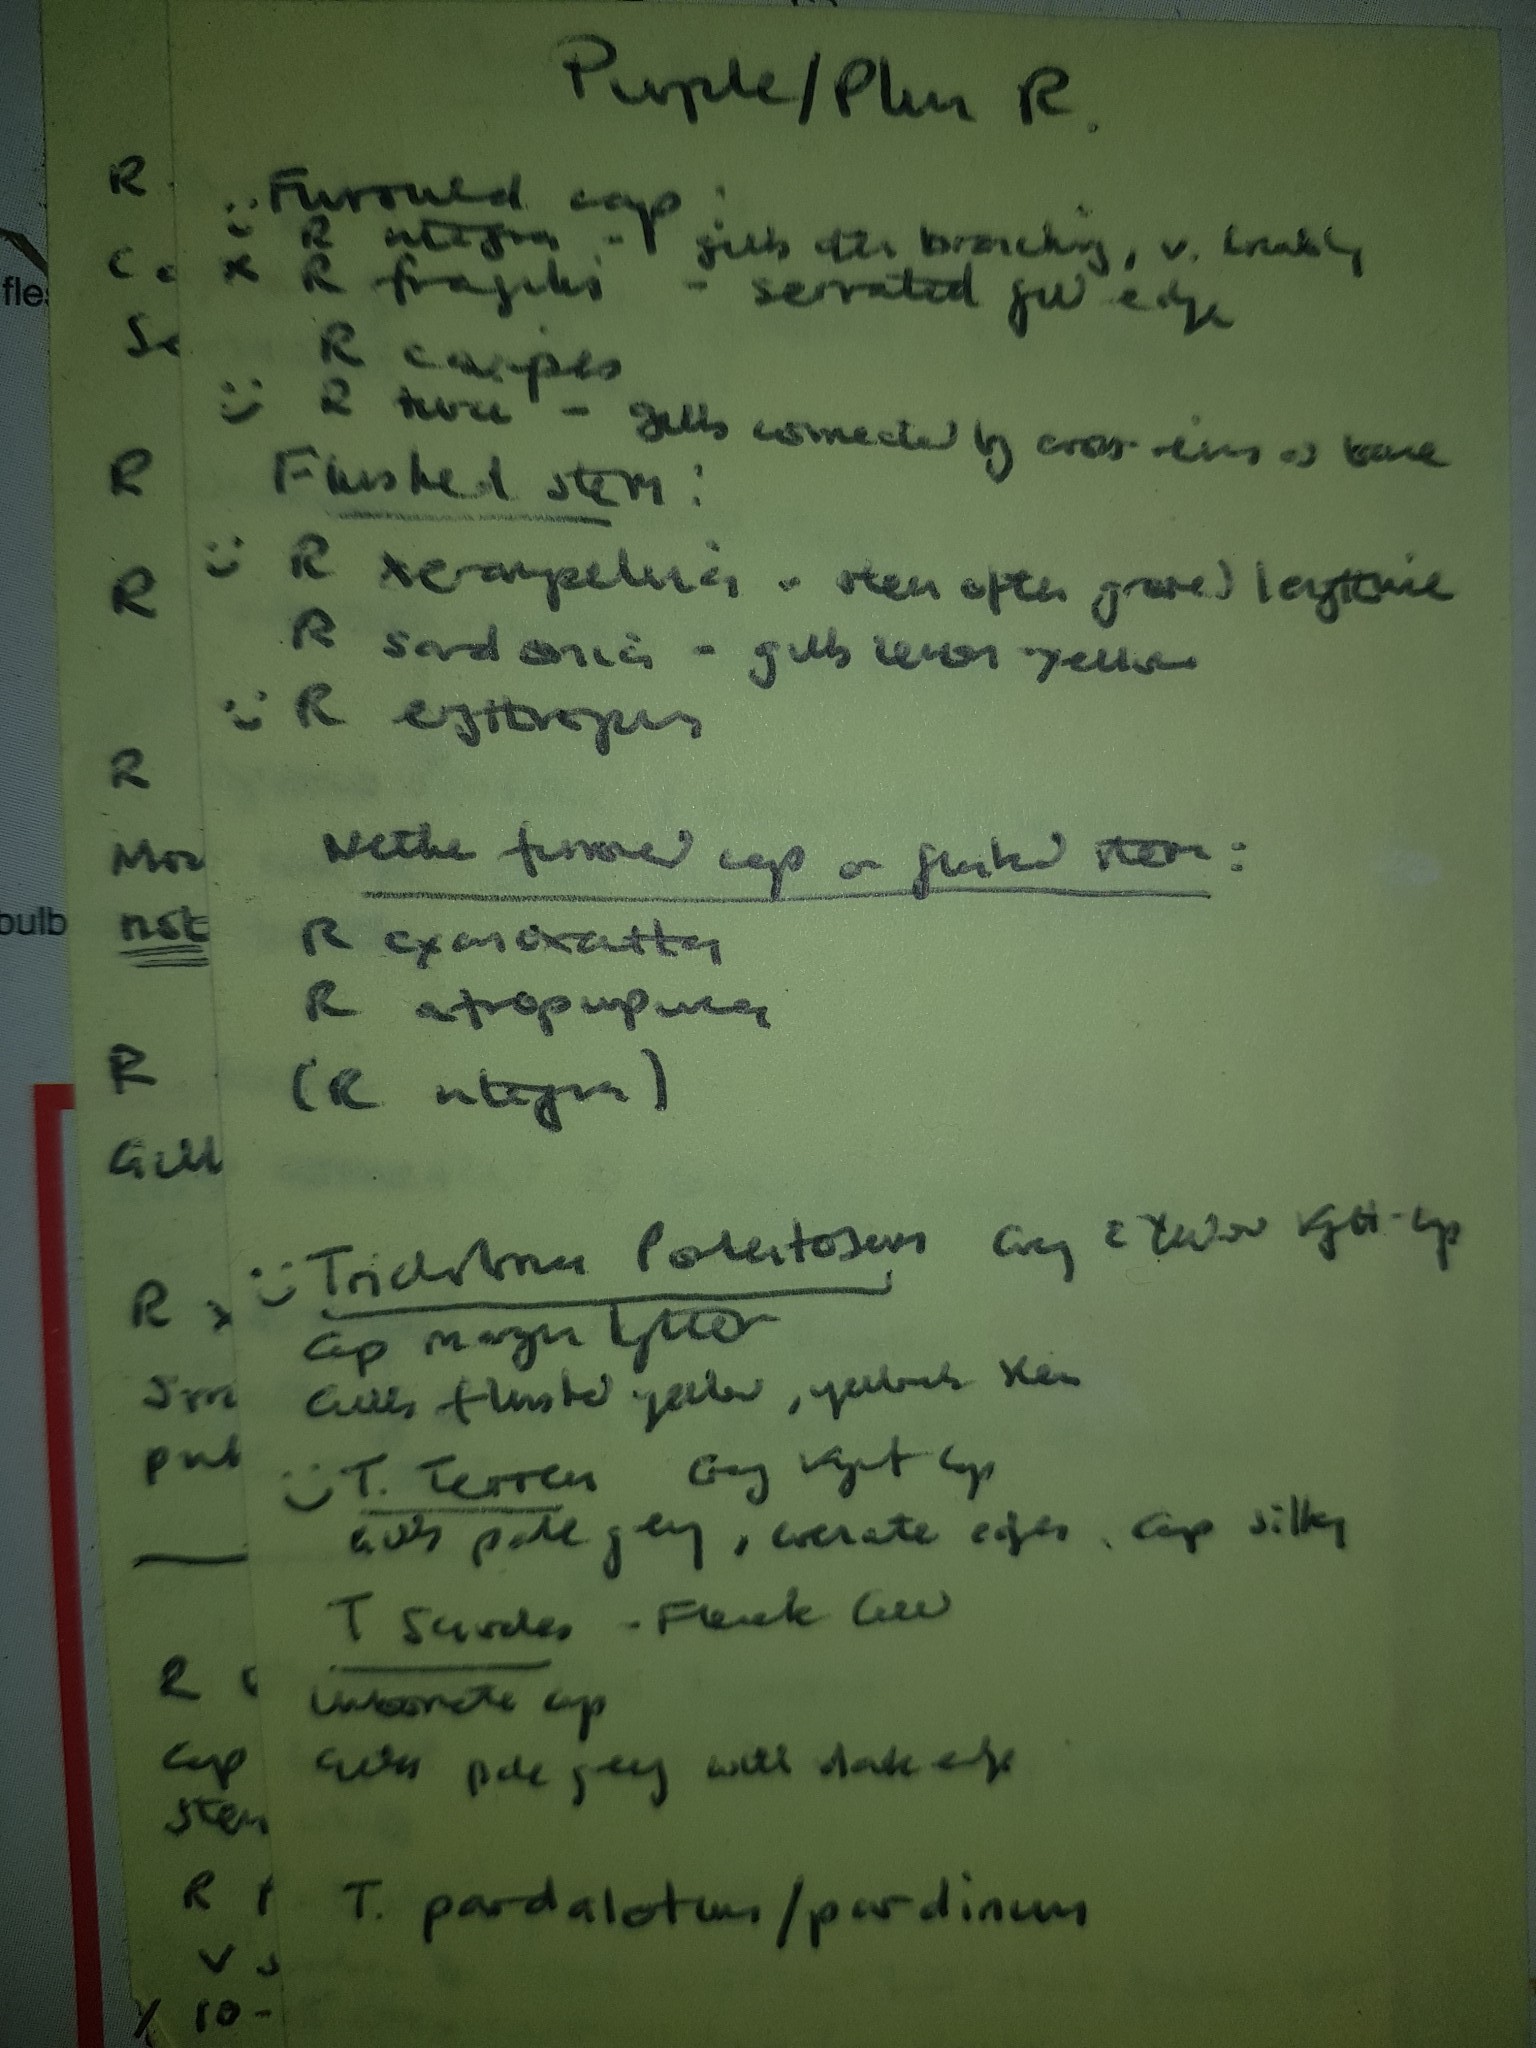 Purple/Plum R.
Furrowed cap:
R integra - gills often branching, v. crumbly
x R fragilis - serrated gill edge
R caesipes
R turci - gills connected by cross-veins at base
Flushed stem:
R xerampelina - stem often grooved lengthwise
R sardonia - gills lemon-yellow
R erythropus
Neither furrowed cap or flushed stem:
R cyanoxantha
R atropurpurea
(R integra)
Tricholoma Portentosum Grey & Yellow
Cap margin lighter
Gills flushed yellow, yellowish stem
T. Terreum Grey cap
Gills pale grey, serrate edges. Cap silky
T Sciodes
Umbonate cap
Gills pale grey with dark edge
T. pardalotum/pardinum
R
Se
R
R
R
Mor
not
R
Gill
R
R
Cap
Stem
R
10-
fles
bulb